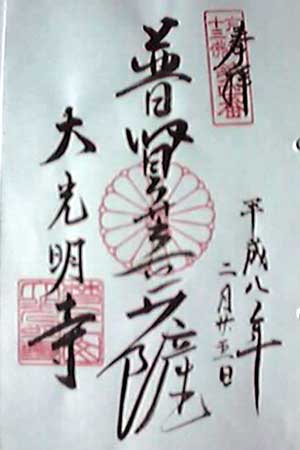 奉拝
十三佛
平成八年
二月廿五日
普賢菩薩
大光明寺